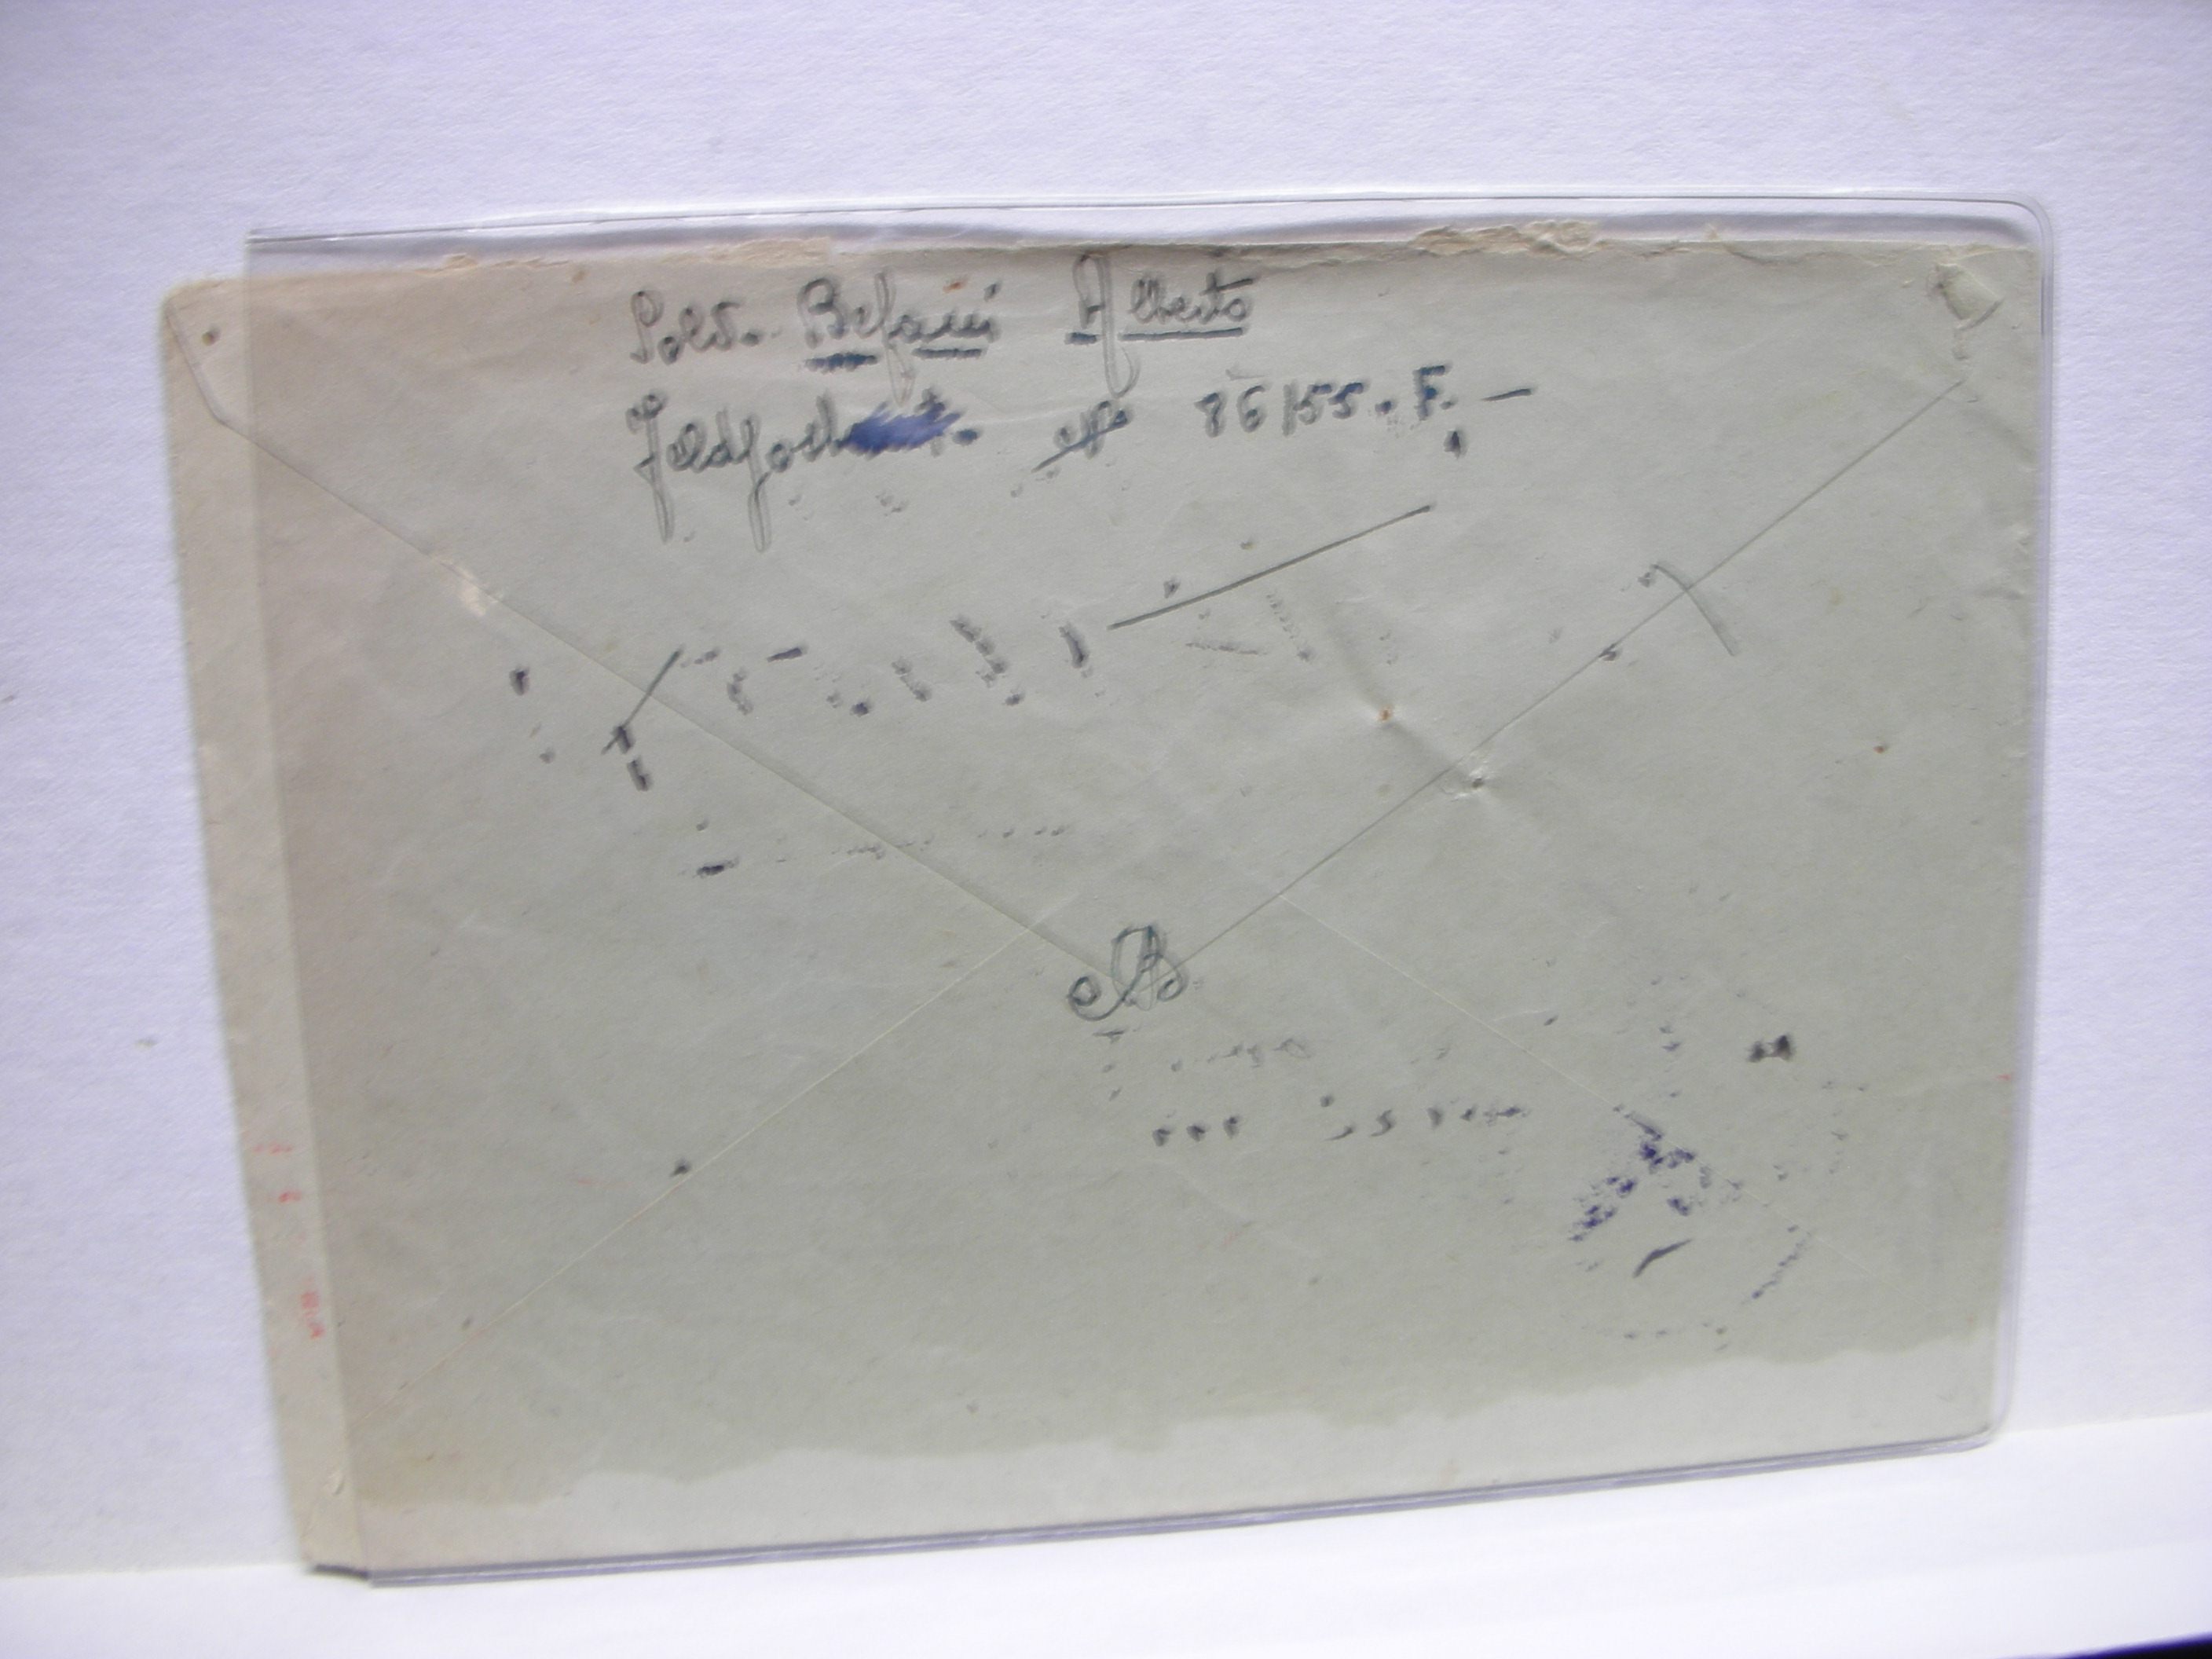 Sold. Befani Alberto
Feldpost. N° 86155. F. —
AB